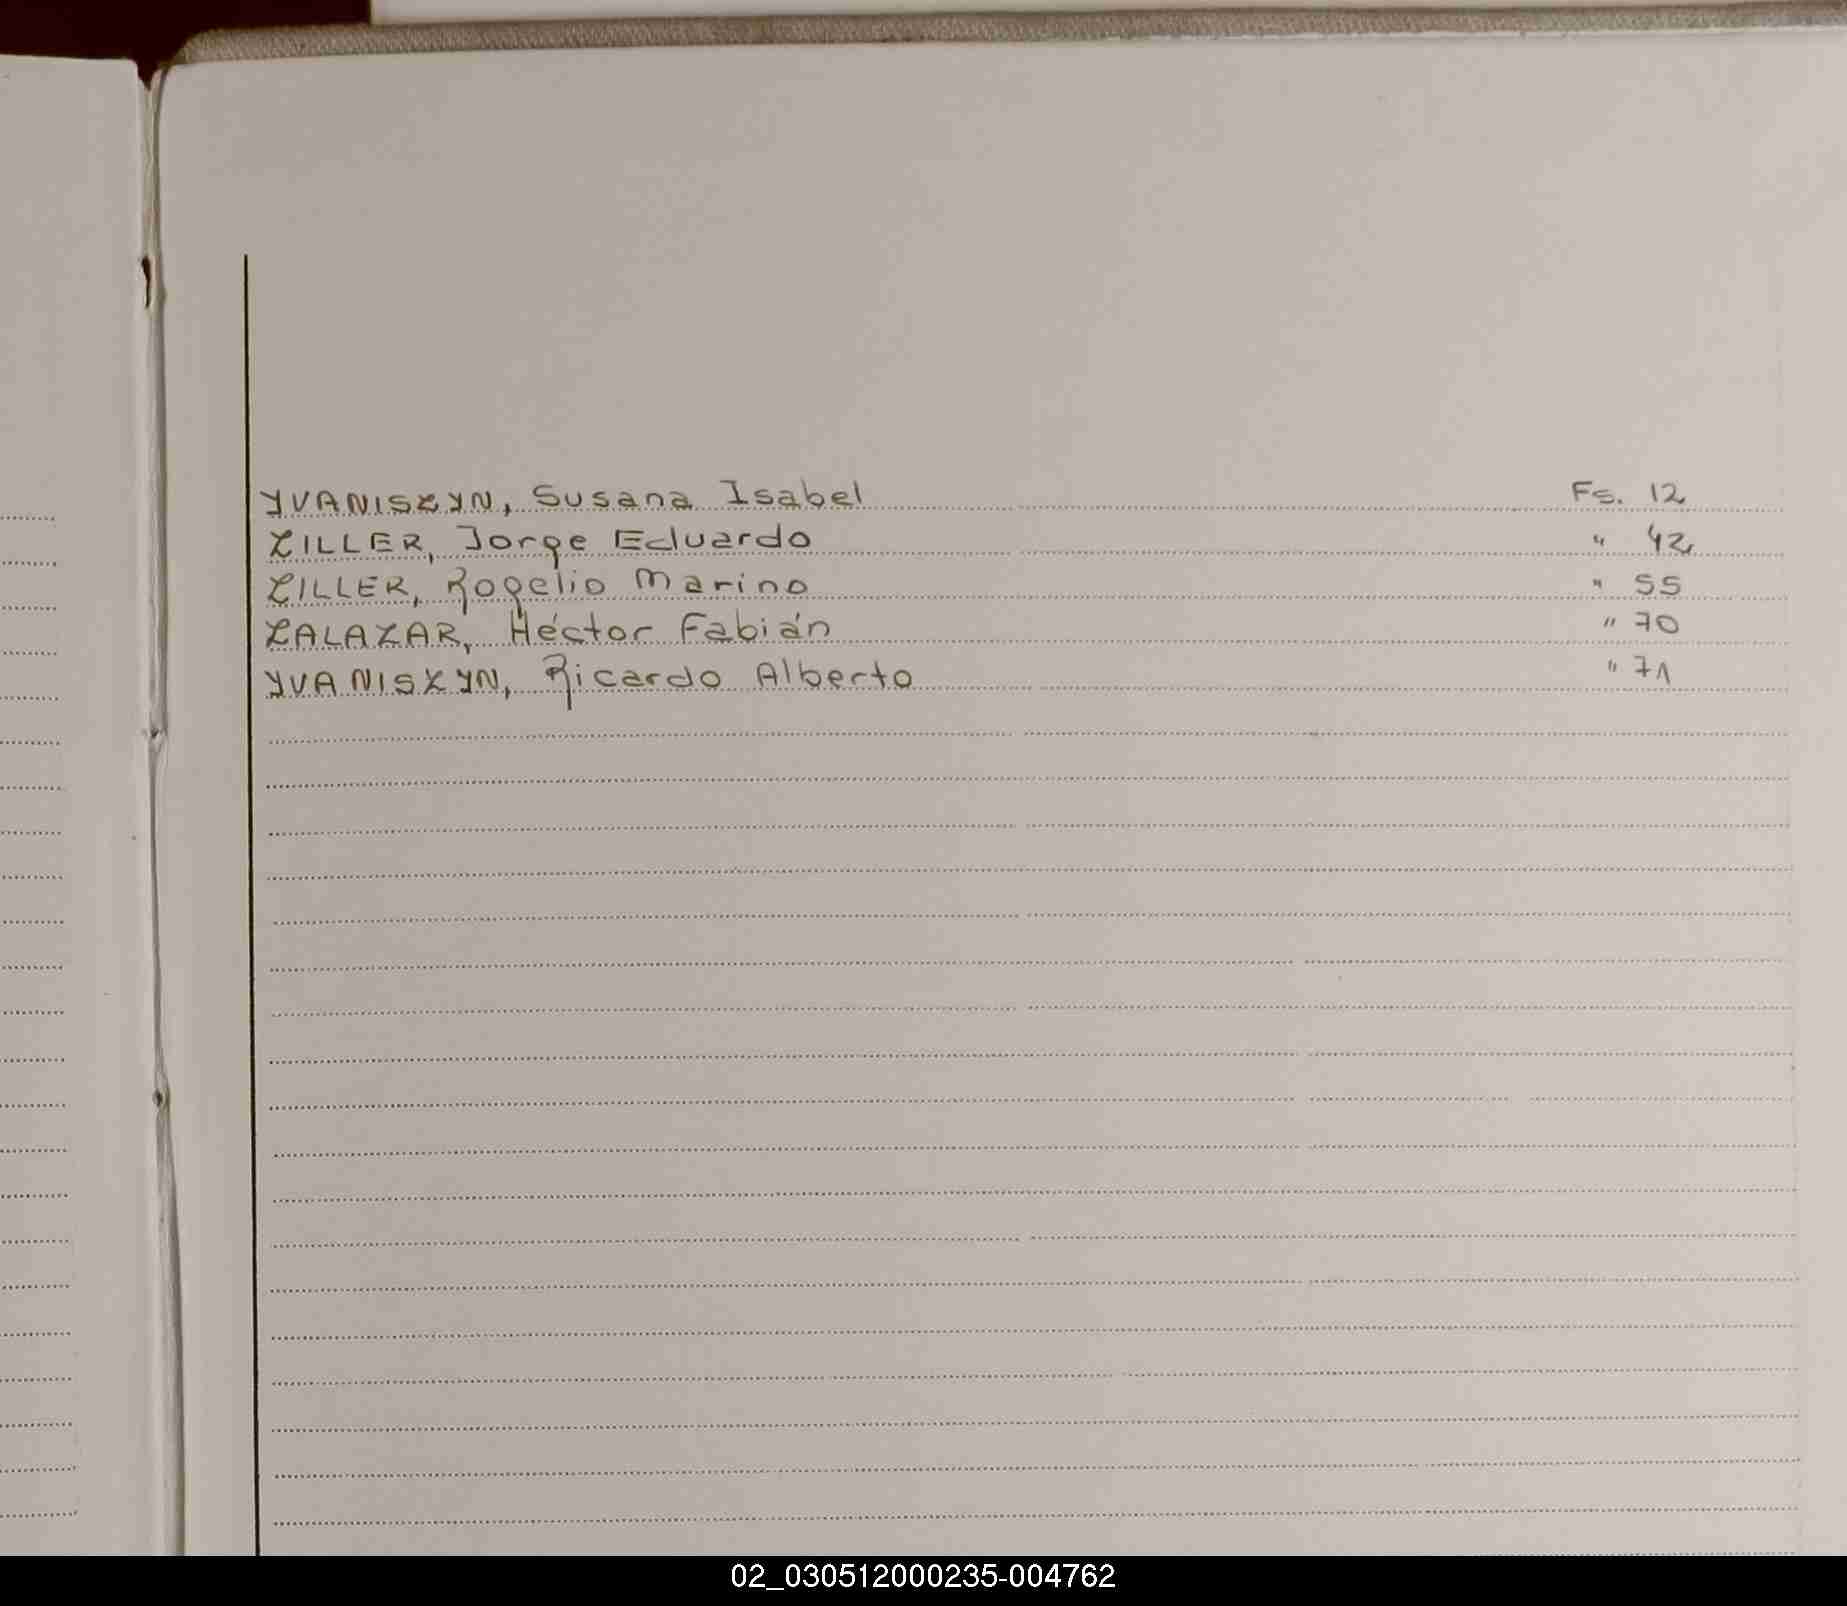 YVANISZYN, Susana Isabel Fs. 12
ZILLER, Jorge Eduardo " 42
ZILLER, Rogelio Marino " 55
ZALAZAR, Héctor Fabián " 70
YVANISZYN, Ricardo Alberto " 71
02_030512000235-004762